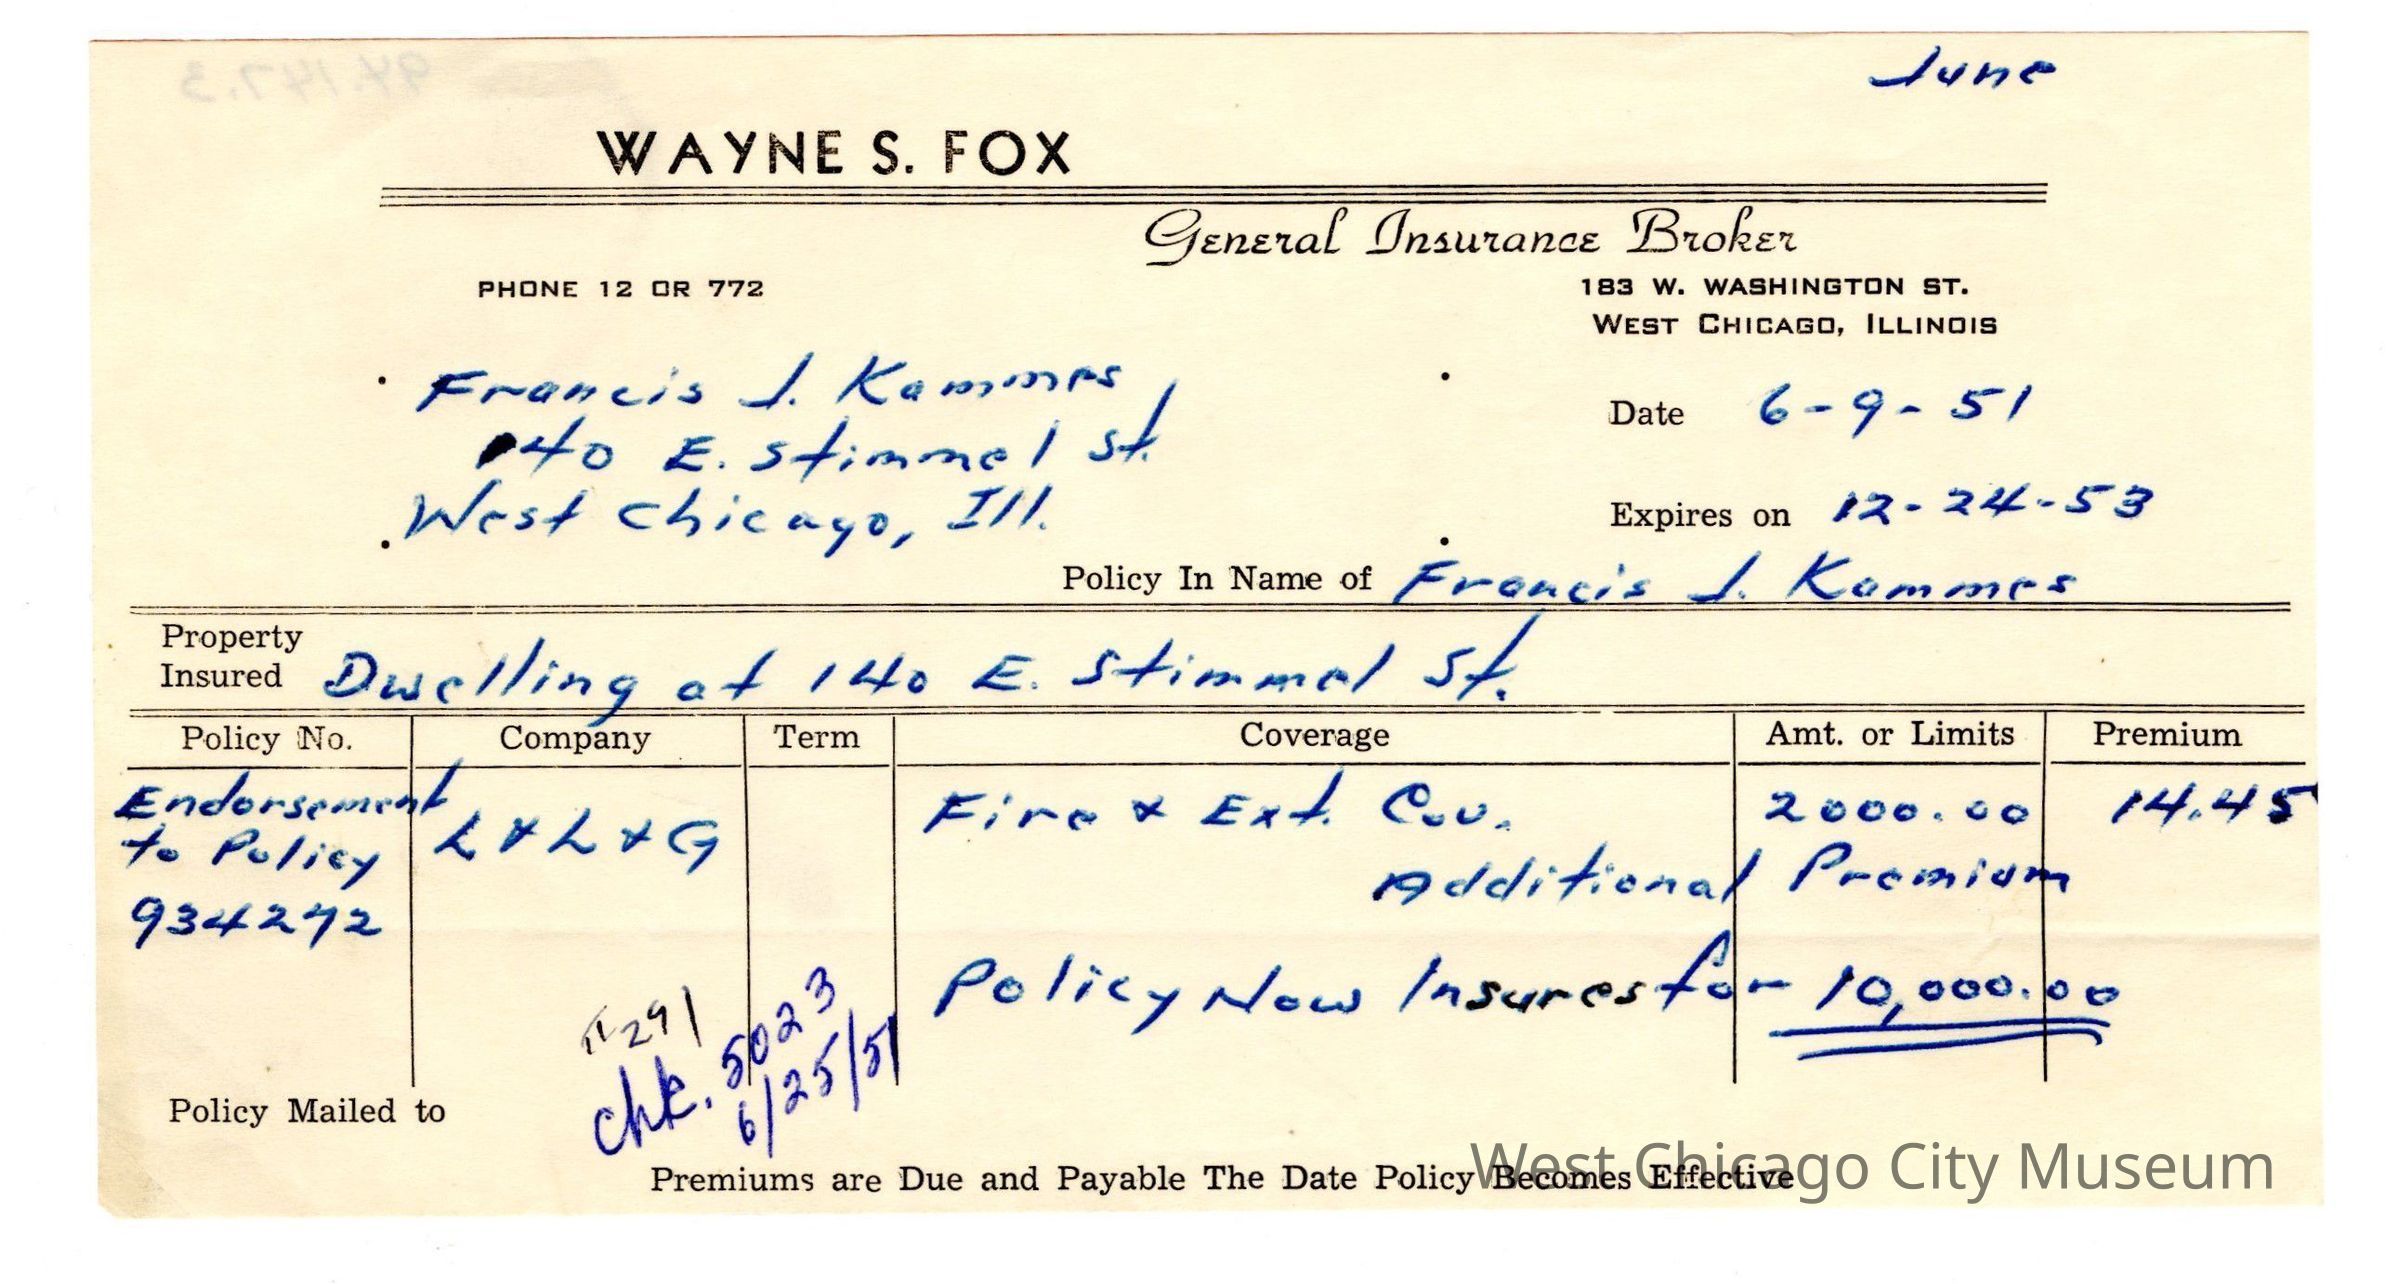 June
94.147.3
WAYNE S. FOX
General Insurance Broker
PHONE 12 OR 772
183 W. WASHINGTON ST.
WEST CHICAGO, ILLINOIS
Francis J. Kammes
140 E. Stimmel St.
West Chicago, Ill.
Date 6-9-51
Expires on 12-24-53
Policy In Name of Francis J. Kammes
Property Insured Dwelling at 140 E. Stimmel St.
Policy No. Company Term Coverage Amt. or Limits Premium
Endorsement L & L & G Fire & Ext. Cov. 2000.00 14.45
to Policy Additional Premium
934272
Policy Now Insures for 10,000.00
291
chk. 5023
6/25/51
Policy Mailed to
Premiums are Due and Payable The Date Policy Becomes Effective
West Chicago City Museum